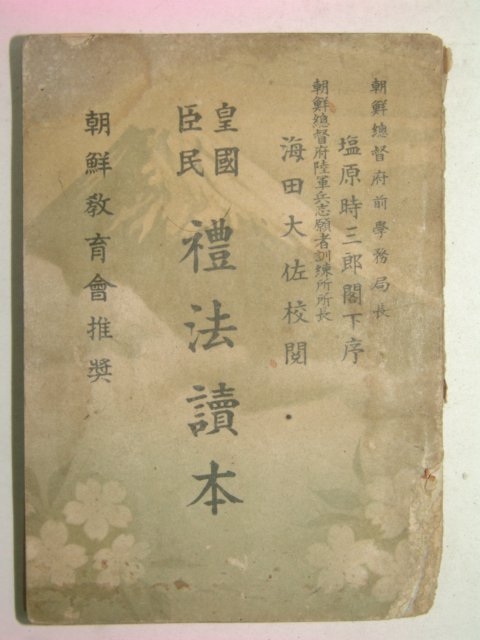 朝鮮總督府前學務局長
塩原時三郎閣下序
朝鮮總督府陸軍兵志願者訓練所所長
海田大佐校閲
皇國
臣民
禮法讀本
朝鮮教育會推奬